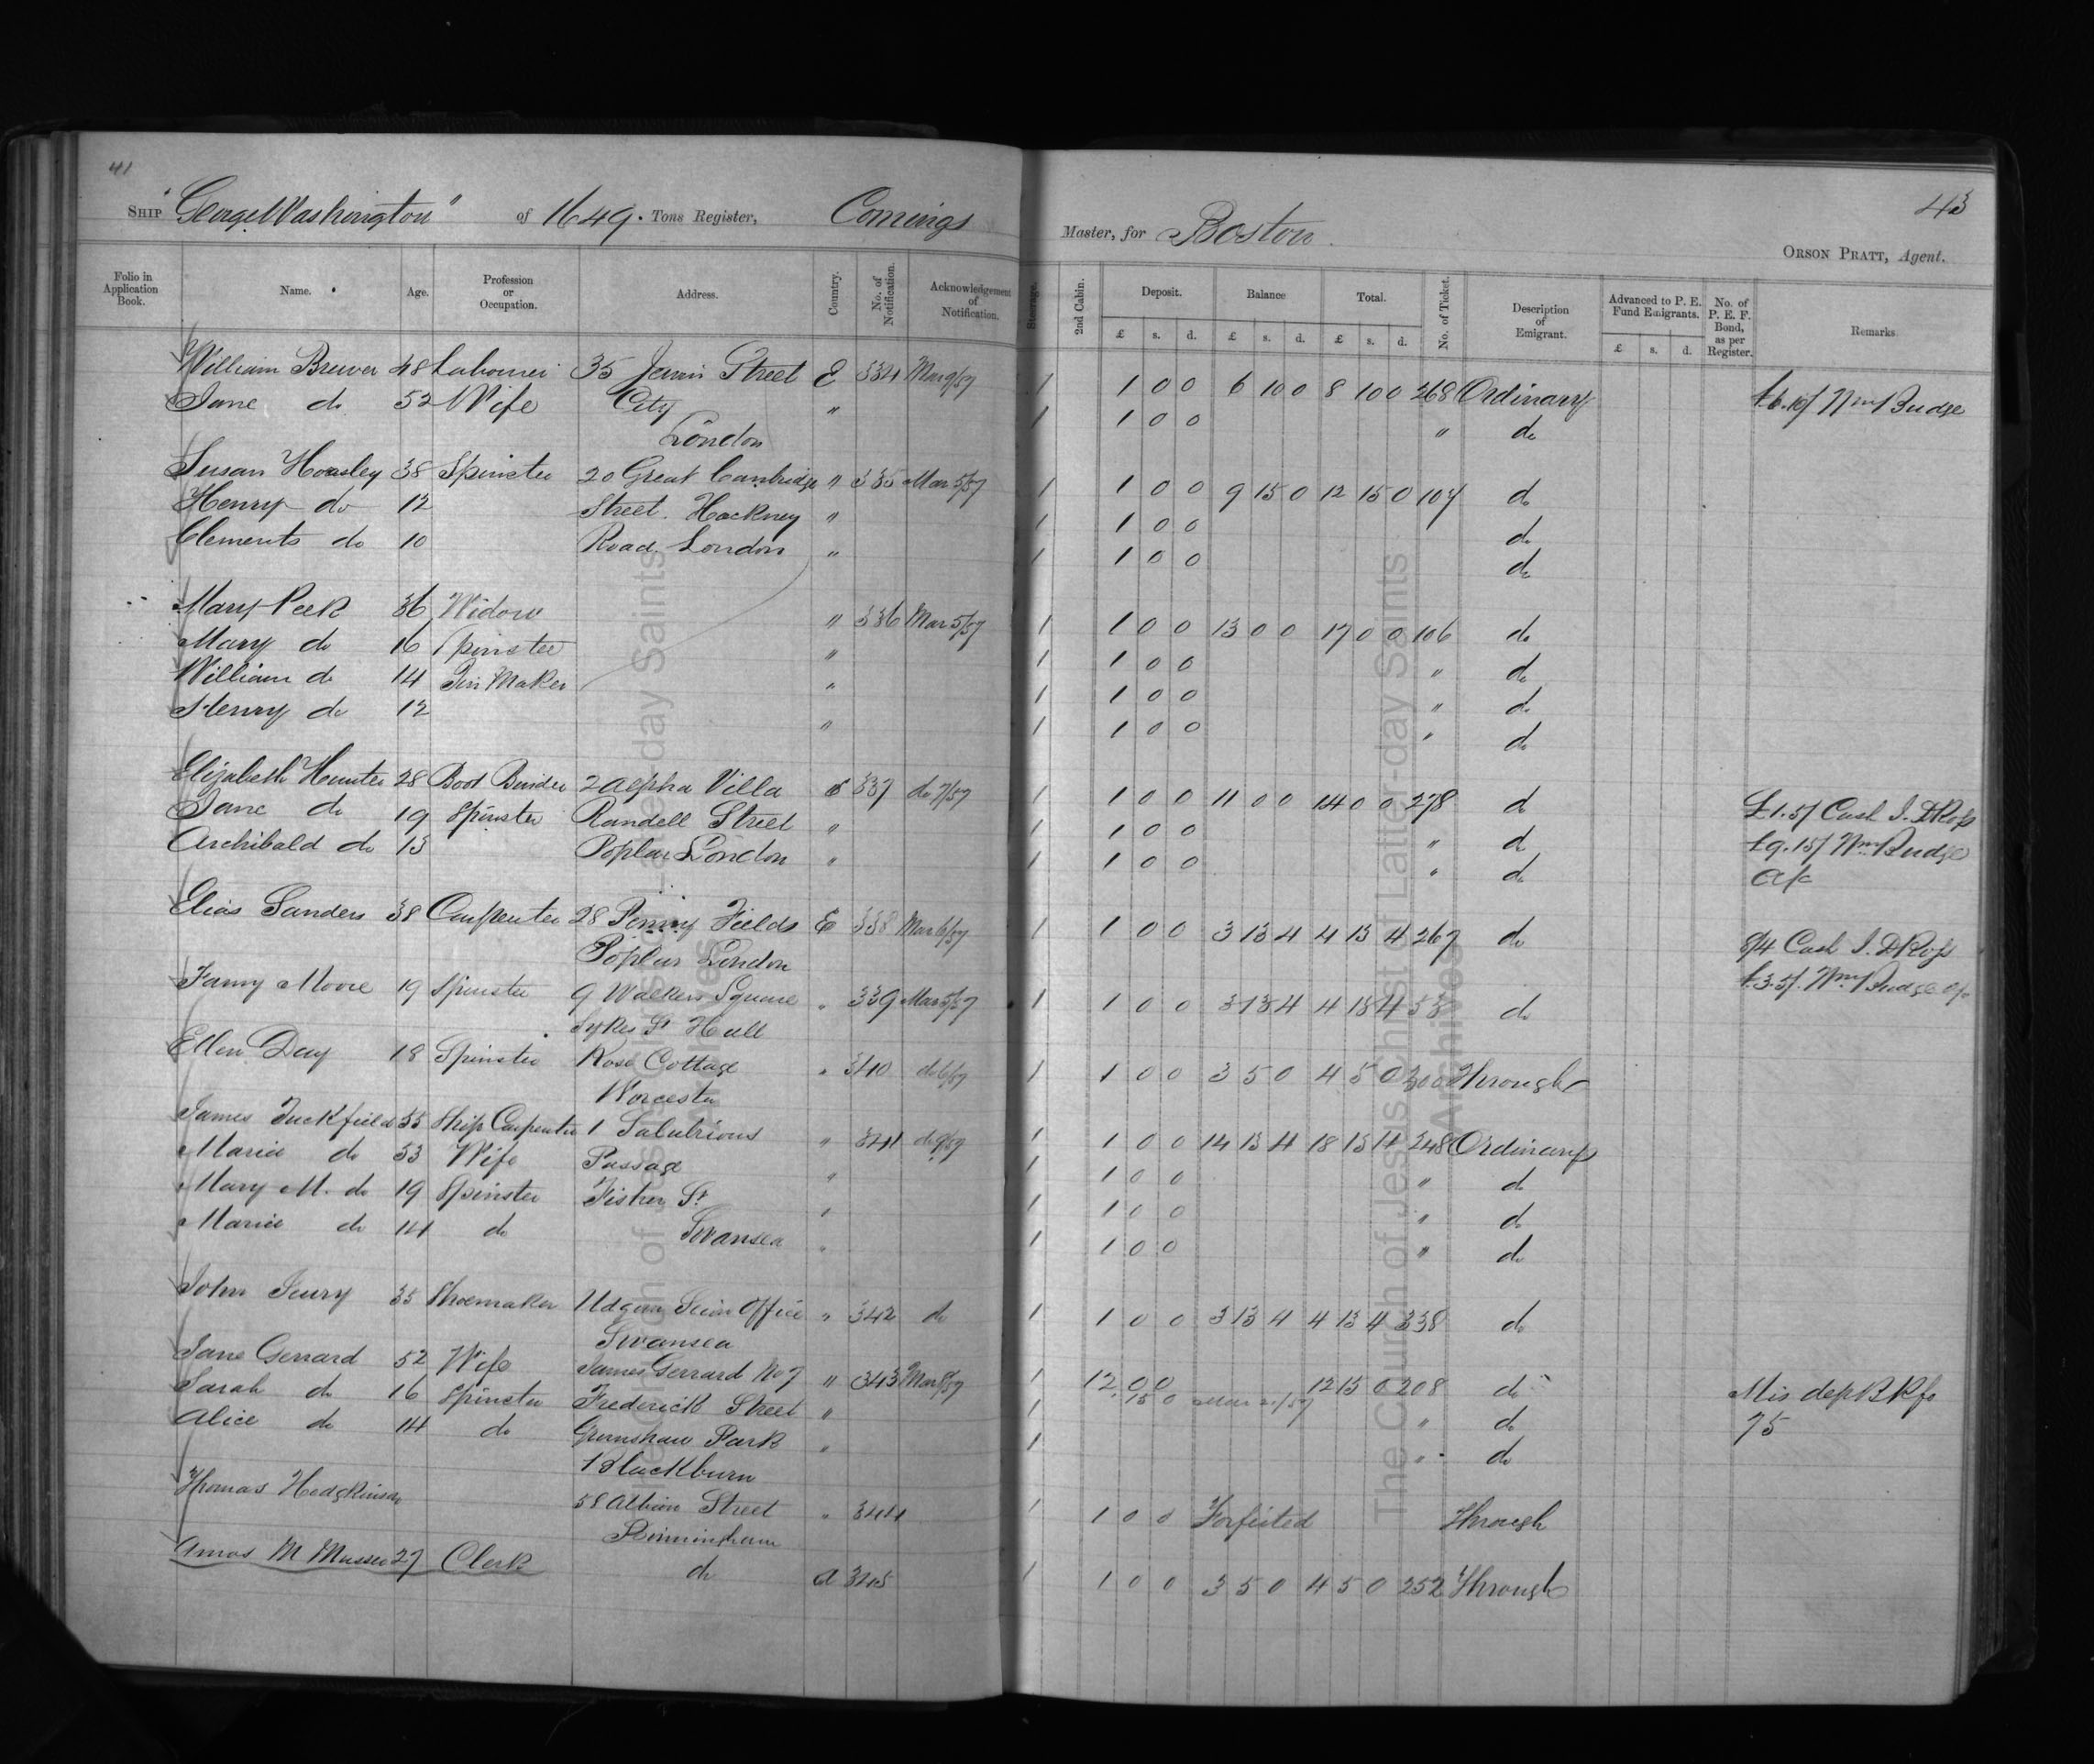 41
43
SHIP "George Washington" of 1649. Tons Register, Comings Master, for Boston.
ORSON PRATT, Agent.
Folio in Application Book. Name. Age. Profession or Occupation. Address. Country. No. of Notification. Acknowledgement of Notification. Steerage. 2nd Cabin. Deposit. Balance Total. No. of Ticket. Description of Emigrant. Advanced to P. E. Fund Emigrants. No. of P. E. F. Bond, as per Register. Remarks
£ s. d. £ s. d. £ s. d. £ s. d.
William Brewer 48 Labourer 35 Jewin Street E 334 Mar 9/57 1 1 0 0 6 10 0 8 10 0 268 Ordinary £6.10/ Wm Budge
Jane do 52 Wife City " 1 1 0 0 " do
London
Susan Horsley 38 Spinster 20 Great Cambridge " 335 Mar 5/57 1 1 0 0 9 15 0 12 15 0 107 do
Henry do 12 Street. Hackney " 1 1 0 0 do
Clements do 10 Road. London " 1 1 0 0 do
Mary Peek 36 Widow " 336 Mar 5/57 1 1 0 0 13 0 0 17 0 0 106 do
Mary do 16 Spinster " 1 1 0 0 " do
William do 14 Maker " 1 1 0 0 " do
Henry do 12 " 1 1 0 0 " do
Elizabeth Hunter 28 Boot Binder 2 Alpha Villa 337 do 7/57 1 1 0 0 11 0 0 14 0 0 278 do £1.5/ Cash J. D Ross
Jane do 19 Spinster Randell Street " 1 1 0 0 " do £9.15/ Wm Budge
Archibald do 13 Poplar London " 1 1 0 0 " do a/c
Elias Sanders 38 Carpenter 28 Penny Fields E 338 Mar 6/57 1 1 0 0 3 13 4 4 13 4 267 do 8/4 Cash J. D Ross
Poplar London £3.5/. Wm Budge a/c
Fanny Moore 19 Spinster 9 Walkers Square " 339 Mar 5/57 1 1 0 0 3 13 4 4 13 4 53 do
Sykes St Hull
Ellen Day 18 Spinster Rose Cottage " 340 do 6/57 1 1 0 0 3 5 0 4 5 0 300 Through
Worcester
James Tuckfield 55 Ship Carpenter 1 Salubrious " 341 do 9/57 1 1 0 0 14 13 4 18 13 4 348 Ordinary
Maria do 53 Wife Passage " 1 1 0 0 " do
Mary M. do 19 Spinster Fisher St " 1 1 0 0 " do
Maria do 14 do Swansea " 1 1 0 0 " do
John 35 Shoemaker Udgorn Seion Office " 342 do 1 1 0 0 3 13 4 4 13 4 338 do
Swansea
Jane Gerrard 52 Wife James Gerrard No 7 " 343 Mar 8/57 1 12 0 0 12 15 0 208 do Mis dep B K fo
Sarah do 16 Spinster Frederick Street " 1 15 0 " do 75
Alice do 14 do Grimshaw Park " 1 " do
Blackburn
Thomas Hodgkinson 58 Albion Street " 344 1 1 0 0 Forfeited Through
Birmingham
Amos M Musser 27 Clerk do A 345 1 1 0 0 3 5 0 4 5 0 252 Through
The Church of Jesus Christ of Latter-day Saints
Archives